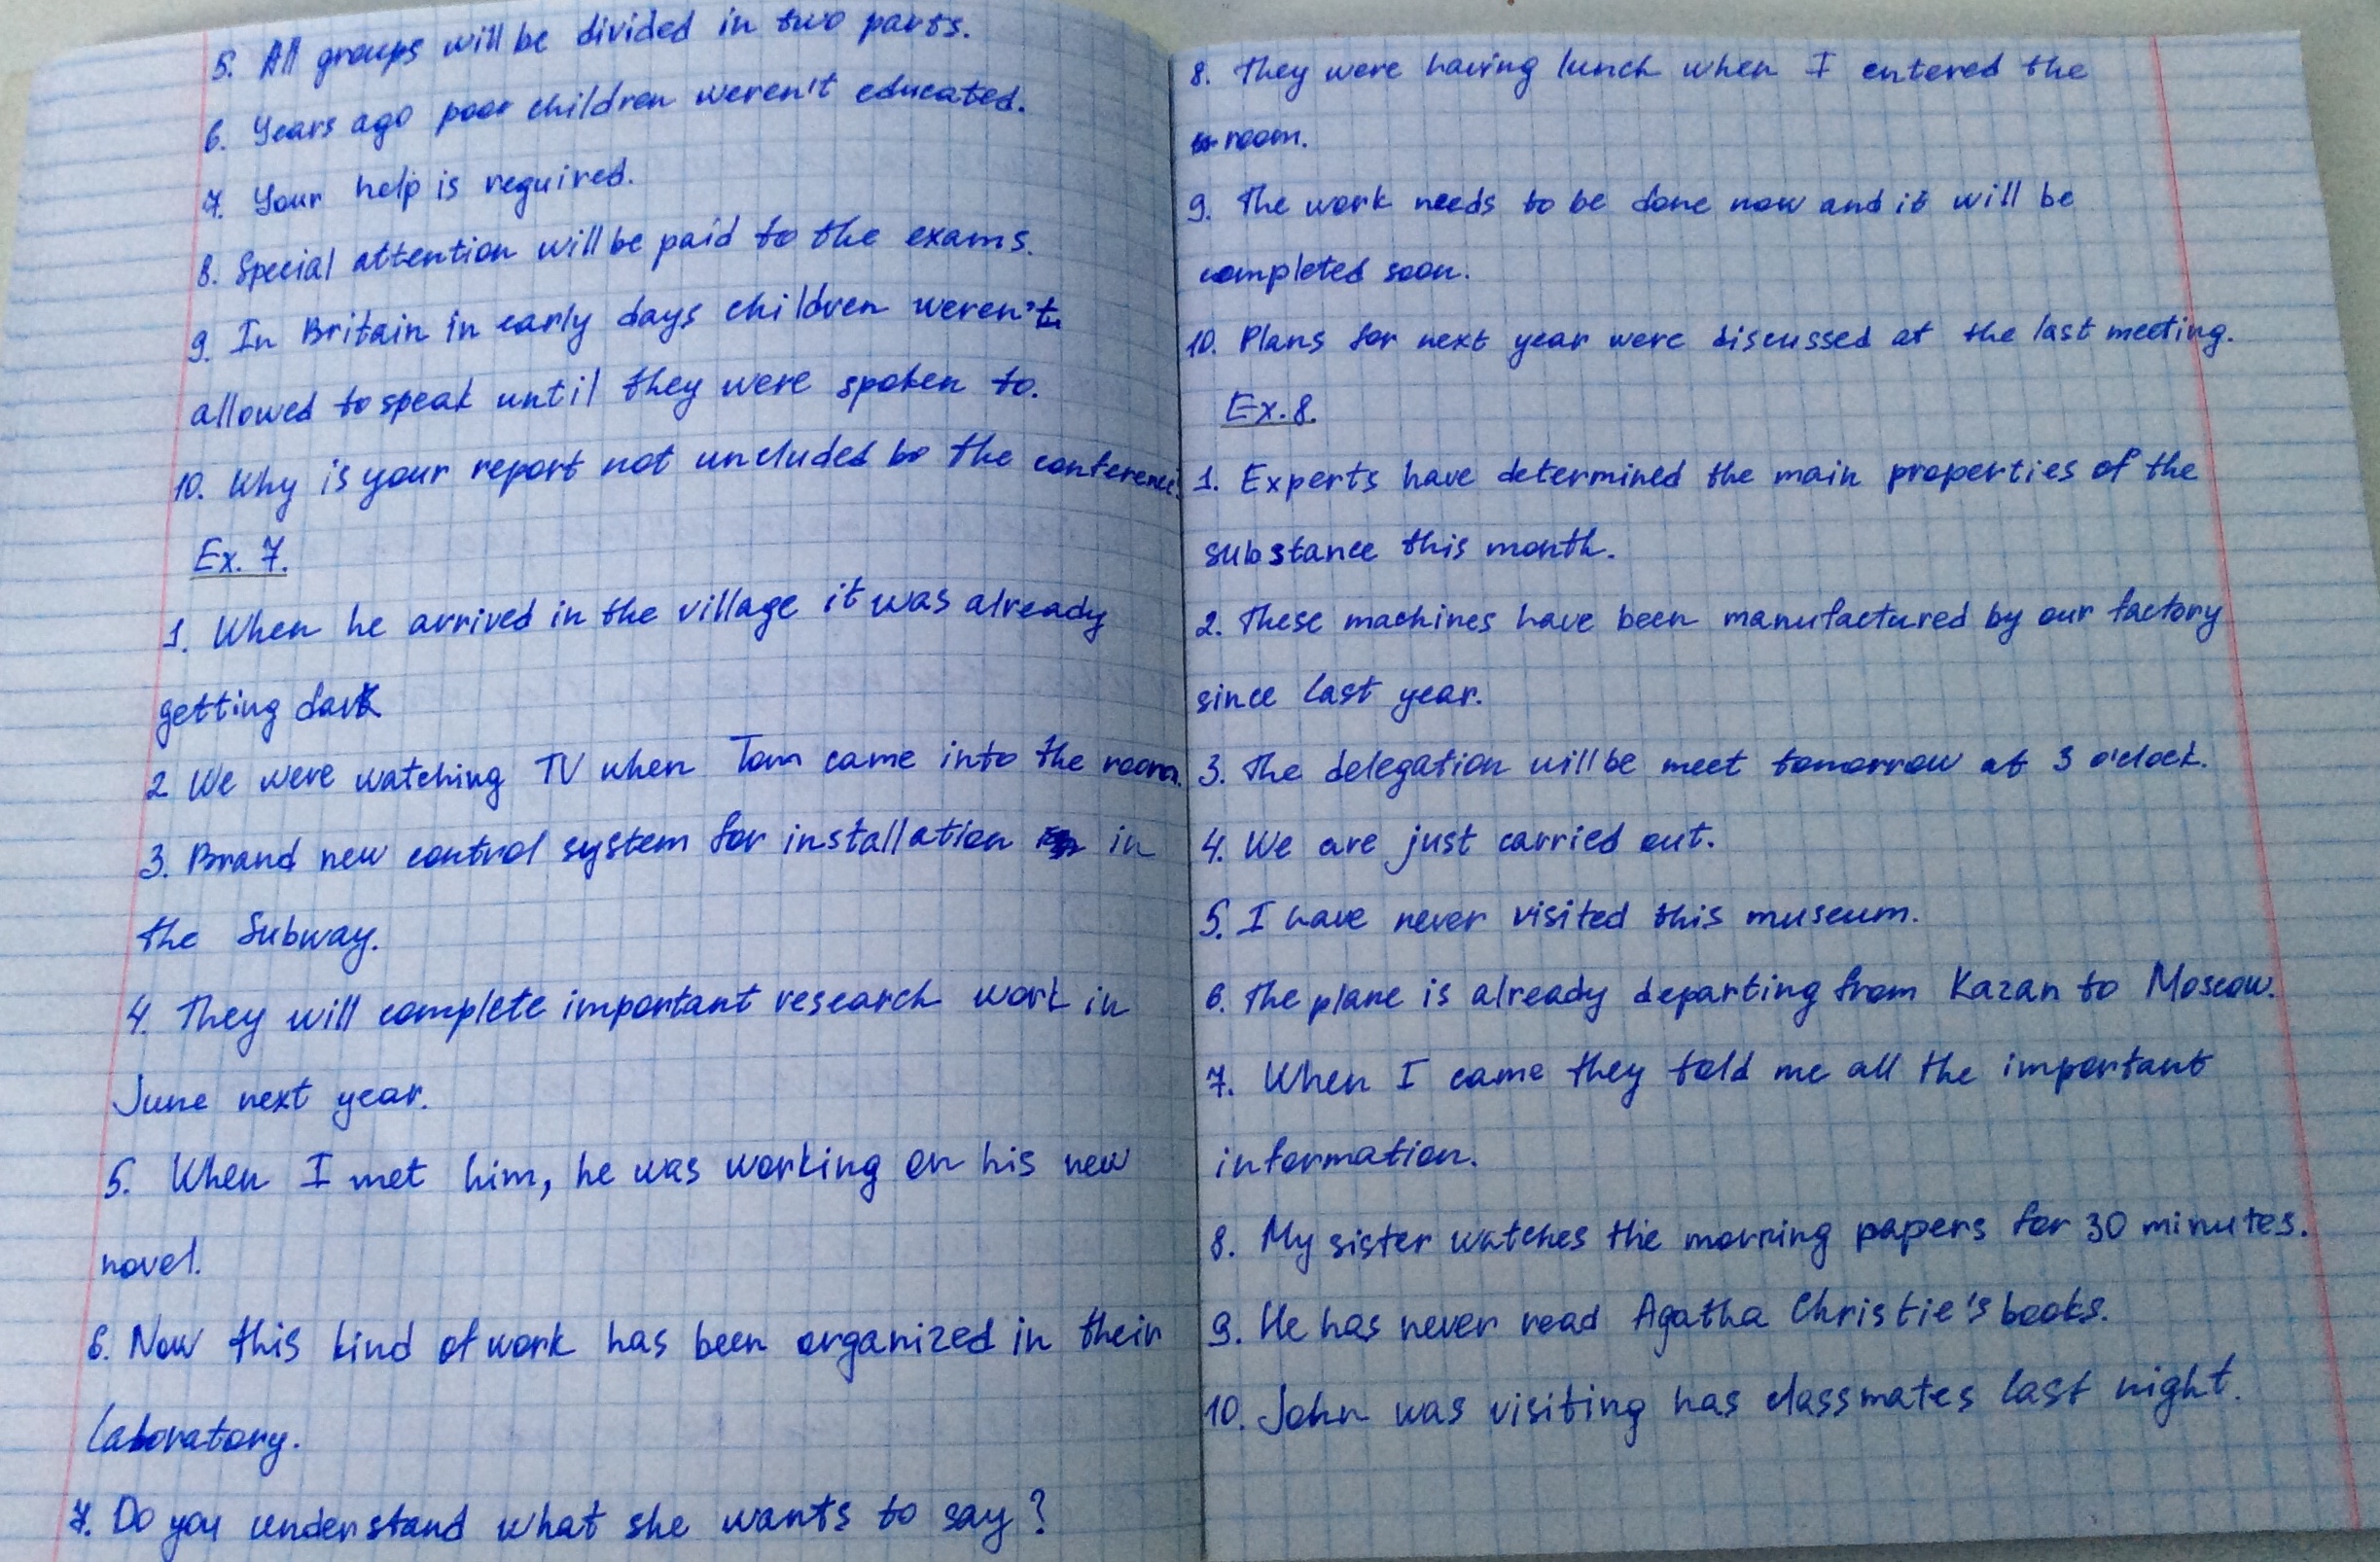 5. All groups will be divided in two parts.
6. Years ago poor children weren't educated.
7. Your help is reguired.
8. Special attention will be paid to the exams.
9. In Britain in early days children weren't
allowed to speak until they were spoken to.
10. Why is your report not uncluded to the conference?
Ex. 7.
1. When he arrived in the village it was already
getting dark
2 We were watching TV when Tom came into the room.
3. Brand new control system for installation in
the Subway.
4. They will complete important research work in
June next year.
5. When I met him, he was working on his new
novel.
6. Now this kind of work has been organized in their
laboratory.
7. Do you understand what she wants to say?
8. They were having lunch when I entered the
room.
9. The work needs to be done now and it will be
completed soon.
10. Plans for next year were discussed at the last meeting.
Ex. 8.
1. Experts have determined the main properties of the
substance this month.
2. These machines have been manufactured by our factory
since last year.
3. The delegation will be meet tomorrow at 3 o'clock.
4. We are just carried out.
5. I have never visited this museum.
6. The plane is already departing from Kazan to Moscow.
7. When I came they told me all the important
information.
8. My sister watches the morning papers for 30 minutes.
9. He has never read Agatha Christie's books.
10. John was visiting has classmates last night.